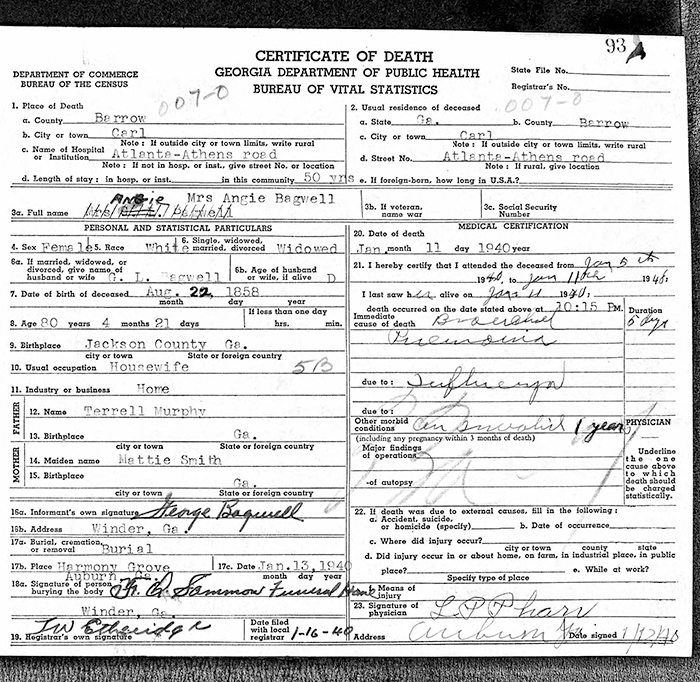 93
CERTIFICATE OF DEATH
DEPARTMENT OF COMMERCE
BUREAU OF THE CENSUS
GEORGIA DEPARTMENT OF PUBLIC HEALTH
BUREAU OF VITAL STATISTICS
State File No.
Registrar's No.
007-0
007-0
1. Place of Death
a. County Barrow
b. City or town Carl
Note: If outside city or town limits, write rural
c. Name of Hospital or Institution Atlanta-Athens road
Note: If not in hosp. or inst., give street No. or location
d. Length of stay: in hosp. or inst. in this community 50 yrs
2. Usual residence of deceased
a. State Ga. b. County Barrow
c. City or town Carl
Note: If outside city or town limits, write rural
d. Street No. Atlanta-Athens road
Note: If rural, give location
e. If foreign-born, how long in U.S.A.?
Angie Mrs Angie Bagwell
3a. Full name
3b. If veteran, name war
3c. Social Security Number
PERSONAL AND STATISTICAL PARTICULARS
4. Sex Female 5. Race White 6. Single, widowed, married, divorced Widowed
6a. If married, widowed, or divorced, give name of husband or wife G. L. Bagwell
6b. Age of husband or wife, if alive D
7. Date of birth of deceased Aug. 22, 1858
month day year
If less than one day
8. Age 80 years 4 months 21 days hrs. min.
9. Birthplace Jackson County Ga.
city or town State or foreign country
10. Usual occupation Housewife 5B
11. Industry or business Home
FATHER
12. Name Terrell Murphy
13. Birthplace Ga.
city or town State or foreign country
MOTHER
14. Maiden name Mattie Smith
15. Birthplace Ga.
city or town State or foreign country
16a. Informant's own signature George Bagwell
16b. Address Winder, Ga.
17a. Burial, cremation, or removal Burial
17b. Place Harmony Grove 17c. Date Jan.13, 1940
Auburn Ga. month day year
18a. Signature of person burying the body F. Q. Sammon Funeral Home
Winder, Ga.
19. Registrar's own signature J W Etheridge Date filed with local registrar 1-16-40
MEDICAL CERTIFICATION
20. Date of death
Jan. month 11 day 1940 year
21. I hereby certify that I attended the deceased from Jan 5th
1940, to Jan 11th 1940:
I last saw her alive on Jan 11 1940:
death occurred on the date stated above at 10:15 PM.
Immediate cause of death Bronchial
Pneumonia
Duration
5 dys
due to: Influenza
due to:
Other morbid conditions An Invalid 1 year
(including any pregnancy within 3 months of death)
Major findings of operations
of autopsy
PHYSICIAN
Underline the one cause above to which death should be charged statistically.
22. If death was due to external causes, fill in the following:
a. Accident, suicide, or homicide (specify) b. Date of occurrence
c. Where did injury occur?
city or town county state
d. Did injury occur in or about home, on farm, in industrial place, in public place? e. While at work?
Specify type of place
Means of injury
23. Signature of physician L. P. Pharr
Address Auburn Ga Date signed 1/12/40